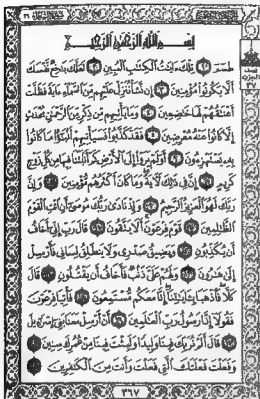 بِسْمِ اللَّهِ الرَّحْمَٰنِ الرَّحِيمِ
طسم ① تلك ءايت الكتب المبين ② لعلك بخع نفسك
ألا يكونوا مؤمنين ③ إن نشأ ننزل عليهم من السماء ءاية فظلت
أعنقهم لها خضعين ④ وما يأتيهم من ذكر من الرحمن محدث
إلا كانوا عنه معرضين ⑤ فقد كذبوا فسيأتيهم أنبؤا ما كانوا
به يستهزءون ⑥ أولم يروا إلى الأرض كم أنبتنا فيها من كل زوج
كريم ⑦ إن في ذلك لآية وما كان أكثرهم مؤمنين ⑧ وإن
ربك لهو العزيز الرحيم ⑨ وإذ نادى ربك موسى أن ائت القوم
الظلمين ⑩ قوم فرعون ألا يتقون ⑪ قال رب إني أخاف
أن يكذبون ⑫ ويضيق صدري ولا ينطلق لساني فأرسل
إلى هرون ⑬ ولهم علي ذنب فأخاف أن يقتلون ⑭ قال
كلا فاذهبا بءايتنا إنا معكم مستمعون ⑮ فأتيا فرعون
فقولا إنا رسول رب العلمين ⑯ أن أرسل معنا بني إسرءيل
⑰ قال ألم نربك فينا وليدا ولبثت فينا من عمرك سنين ⑱
وفعلت فعلتك التي فعلت وأنت من الكفرين ⑲
٣٦٧